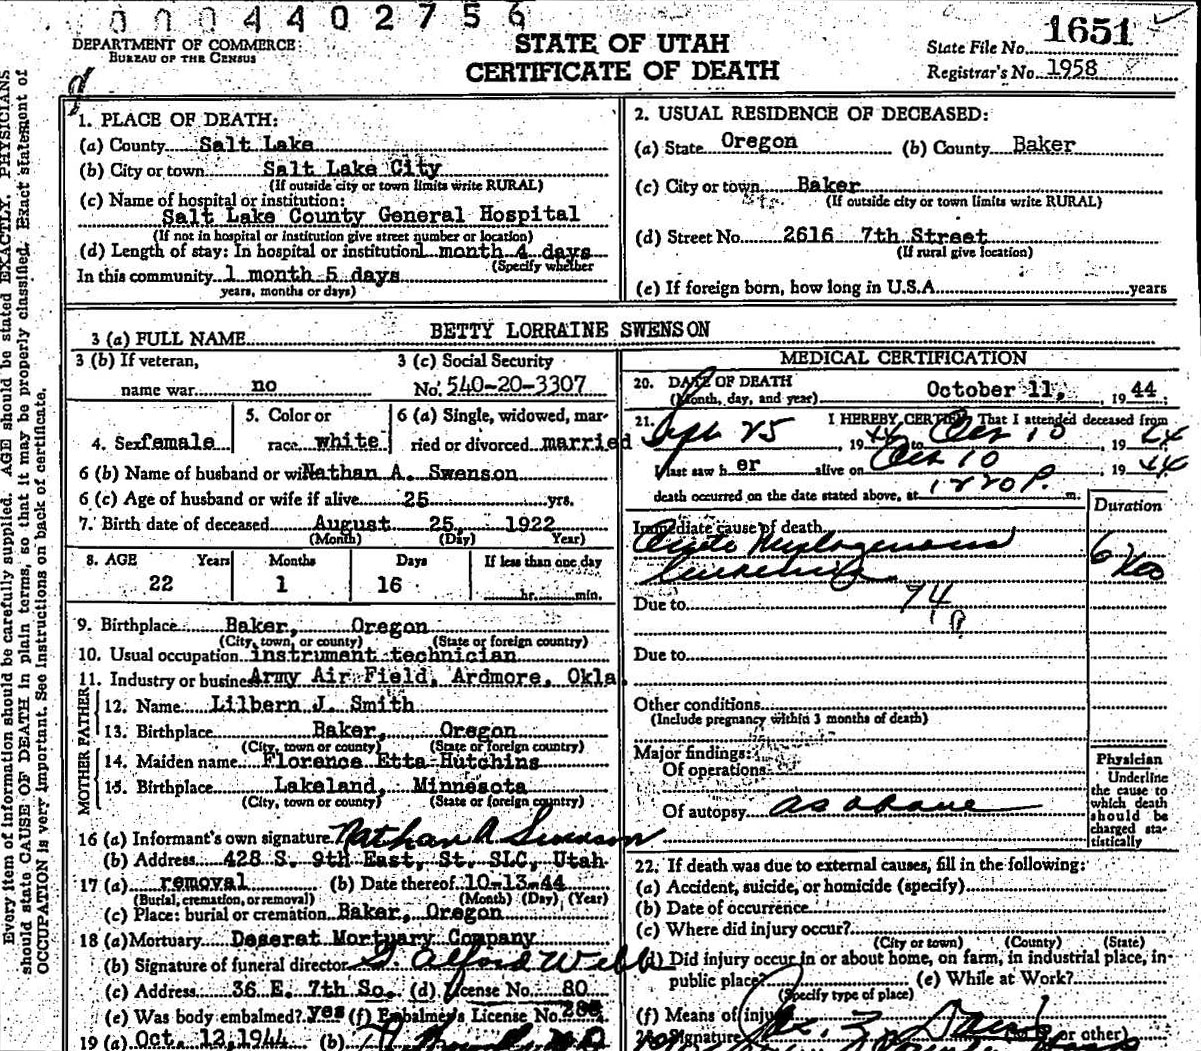 0004402756
DEPARTMENT OF COMMERCE
BUREAU OF THE CENSUS
STATE OF UTAH
CERTIFICATE OF DEATH
State File No. 1651
Registrar's No. 1958
Every item of information should be carefully supplied. AGE should be stated EXACTLY. PHYSICIANS
should state CAUSE OF DEATH in plain terms, so that it may be properly classified. Exact statement of
OCCUPATION is very important. See instructions on back of certificate.
1. PLACE OF DEATH:
(a) County Salt Lake
(b) City or town Salt Lake City
(If outside city or town limits write RURAL)
(c) Name of hospital or institution:
Salt Lake County General Hospital
(If not in hospital or institution give street number or location)
(d) Length of stay: In hospital or institution 1 month 4 days
(Specify whether
In this community 1 month 5 days
years, months or days)
2. USUAL RESIDENCE OF DECEASED:
(a) State Oregon (b) County Baker
(c) City or town Baker
(If outside city or town limits write RURAL)
(d) Street No. 2616 7th Street
(If rural give location)
(e) If foreign born, how long in U.S.A. years
3 (a) FULL NAME BETTY LORRAINE SWENSON
3 (b) If veteran,
name war no
3 (c) Social Security
No. 540-20-3307
4. Sex female
5. Color or
race white
6 (a) Single, widowed, mar-
ried or divorced married
6 (b) Name of husband or wife Nathan A. Swenson
6 (c) Age of husband or wife if alive 25 yrs.
7. Birth date of deceased August 25, 1922
(Month) (Day) Year)
8. AGE Years Months Days If less than one day
22 1 16 hr. min.
9. Birthplace Baker, Oregon
(City, town, or county) (State or foreign country)
10. Usual occupation instrument technician
11. Industry or business Army Air Field, Ardmore, Okla.
FATHER
12. Name Lilbern J. Smith
13. Birthplace Baker, Oregon
(City, town or county) (State or foreign country)
MOTHER
14. Maiden name Florence Etta Hutchins
15. Birthplace Lakeland, Minnesota
(City, town or county) (State or foreign country)
16 (a) Informant's own signature Nathan A Swenson
(b) Address 428 S. 9th East, St. SLC, Utah
17 (a) removal (b) Date thereof 10-13-44
(Burial, cremation, or removal) (Month) (Day) (Year)
(c) Place: burial or cremation Baker, Oregon
18 (a) Mortuary Deseret Mortuary Company
(b) Signature of funeral director S. Alford Webb
(c) Address 36 E. 7th So. (d) License No. 80
(e) Was body embalmed? yes (f) Embalmer's License No.
19 (a) Oct. 12, 1944 (b)
MEDICAL CERTIFICATION
20. DATE OF DEATH
(Month, day, and year) October 11, 1944;
21. I HEREBY CERTIFY That I attended deceased from
Sept 25, 1944 to Oct 10, 1944
I last saw her alive on Oct 10, 1944
death occurred on the date stated above, at 1220 P. m.
Duration
Immediate cause of death
Acute Myelogenous
Leukemia
6
Due to
74
Due to
Other conditions
(Include pregnancy within 3 months of death)
Major findings:
Of operations
Of autopsy as above
Physician
Underline
the cause to
which death
should be
charged sta-
tistically
22. If death was due to external causes, fill in the following:
(a) Accident, suicide, or homicide (specify)
(b) Date of occurrence
(c) Where did injury occur?
(City or town) (County) (State)
(d) Did injury occur in or about home, on farm, in industrial place, in
public place? (e) While at Work?
(Specify type of place)
(f) Means of injury
Signature or other)